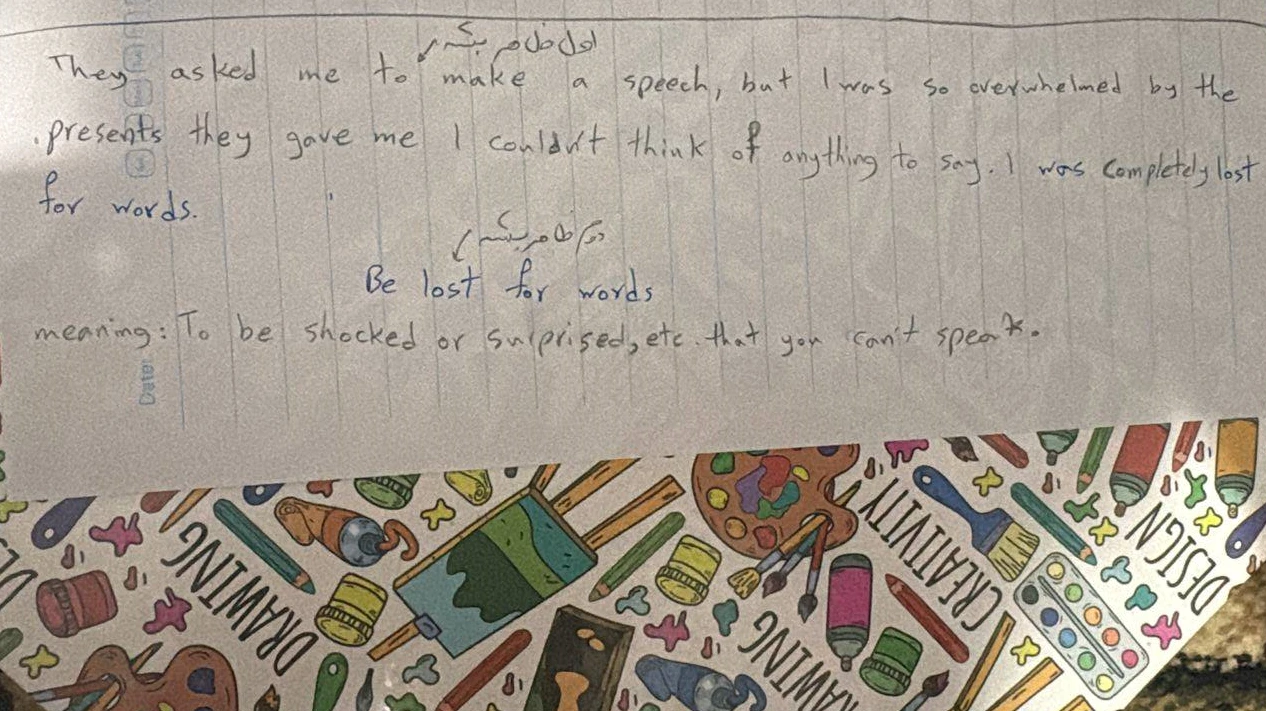 They asked me to make a speech, but I was so overwhelmed by the
presents they gave me I couldn't think of anything to say. I was completely lost
for words.
Be lost for words
meaning: To be shocked or surprised, etc. that you can't speak.
Date:
DRAWING
CREATIVITY
DESIGN